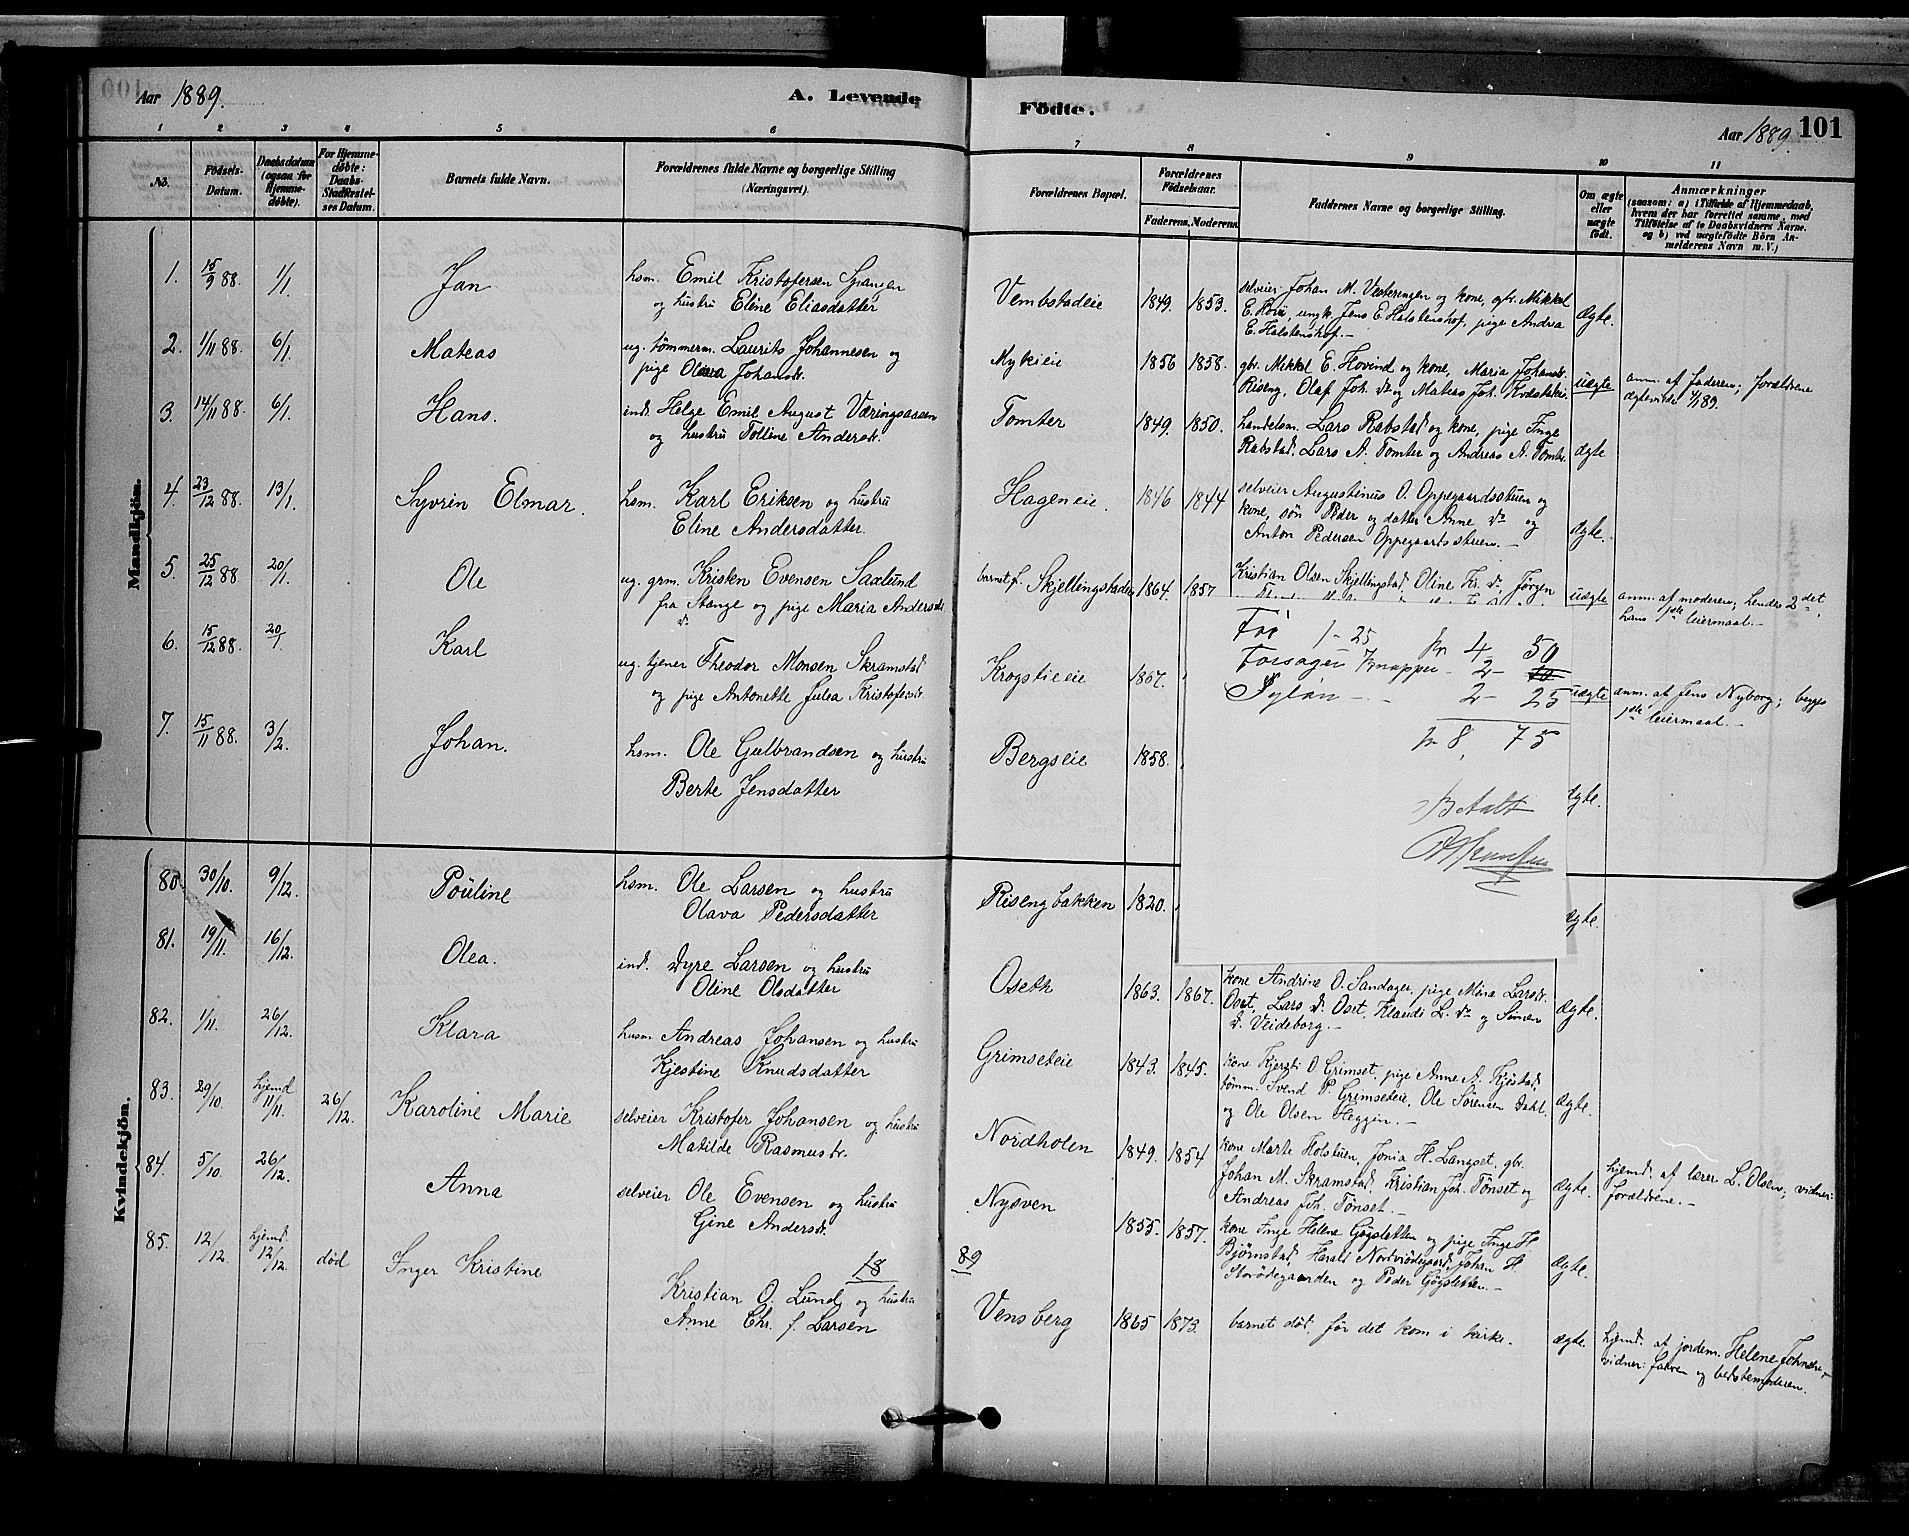 Aar 1889.
A. Levende
Födte.
Aar 1889. 101
1 2 3 4 5 6 7 8 9 10 11
No.
Födsels-
Datum.
Daabsdatum
(ogsaa for
Hjemme-
døbte).
For Hjemme-
døbte:
Daabs-
Stadfæstel-
ses Datum.
Barnets fulde Navn.
Forældrenes fulde Navne og borgerlige Stilling
(Næringsvei).
Forældrenes Bopæl.
Forældrenes
Födselsaar.
Faderens. Moderens.
Faddernes Navne og borgerlige Stilling.
Om ægte
eller
uægte
født.
Anmærkninger
(saasom: a) i Tilfælde af Hjemmedaab,
hvem der har forrettet samme, med
Tilföielse af to Daabsvidners Navne.
og b) ved uægtefödte Börn An-
melderens Navn m. V.)
Mandkjön.
1. 15/9 88. 1/1 Jan
hsm. Emil Kristofersen Spangen
og hustru Eline Eliasdatter
Vembstadeie 1849. 1853.
selveier Johan M. Vesterengen og kone, gbr. Mikkel
E. Hovi, ungk. Jens E. Halstenshof, pige Andrea
E. Halstenshof.—
Ægte.
2. 1/11 88. 6/1. Mateas
ug. tømmerm. Laurits Johannesen og
pige Olava Johansdr.
Mykieie 1856 1858.
gbr. Mikkel E. Hovind og kone, Maria Johansdr.
Riseng, Olaf Joh. do og Mateas Joh.
uægte
anm. af faderen; forældrene
ægteviede 6/1 89.
3. 14/11 88. 6/1. Hans.
ind. Helge Emil August Væringsaasen
og hustru Tolline Andersdr.
Tomter 1849. 1850.
handelsm. Lars Rabstad og kone, pige Inge
Rabstad, Lars A. Tomter og Andreas A. Tomter
ægte
4. 23/12 88. 13/1. Syvrin Elmar.
hsm. Karl Eriksen og hustru
Eline Andersdatter.
Hageneie. 1846 1844
selveier Augustinus O. Oppegaardsstuen og
kone, søn Peder og datter Anne do og
Anton Pedersen Oppegaardsstuen.—
ægte.
5. 25/12 88. 20/1. Ole
ug. grm. Kristen Evensen Saxlund
fra Stange og pige Maria Andersdr.
do
barnet f. Skjellingstadeie 1864. 1857
Kristian Olsen Skjellingstad, Oline Kr. do Jørgen
uægte
anm. af moderen; hendes 2det
hans 1ste leiermaal.—
6. 15/12 88. 20/1 Karl
ug. tjener Theodor Monsen Skramstad
og pige Antonette Julea Kristofersdr.
Krogstieeie 1867.
uægte
anm. af Jens Nyborg; begges
1ste leiermaal.—
7. 15/11 88. 3/2. Johan.
hsm. Ole Gulbrandsen og hustru
Berte Jensdatter
Bergseie 1858.
Ægte.
1-25 kr 4- 50
Forsager Knapper - 2- 10
Syløn — - 2- 25
kr 8, 75
Betalt
Kvindekjön.
80. 30/10. 9/12. Pouline
hsm. Ole Larsen og hustru
Olava Pedersdatter
Risengbakken 1820.
Ægte.
81. 19/11. 16/12. Olea.
ind. Dyre Larsen og hustru
Oline Olsdatter
Oseth 1863. 1867.
kone Andrine O. Sandager, pige Mina Larsdr.
Oset, Lars D. Oset, Klaudi L. do og Simen
D. Veideborg.—
ægte.
82. 1/11. 26/12. Klara
husm. Andreas Johansen og hustru
Kjestine Knudsdatter
Grimseteie 1843. 1845.
kone Kjersti O. Grimset, pige Anne A. Kjøstad,
tømm. Svend P. Grimseteie, Ole Sørensen Dahl
og Ole Olsen Heggin.—
ægte.
83. 29/10. hjemd 11/11. 26/12. Karoline Marie
selveier Kristofer Johansen og hustru
Matilde Rasmusdr.
Nordholen 1849. 1854
kone Marte Holstuen, Jonia H. Langset, gbr.
Johan M. Skramstad, Kristian Joh. Tønset og
Andreas Joh. Tønset.—
ægte.
hjemd. af lærer L. Olsen; vidner:
forældrene.—
84. 5/10. 26/12. Anna
selveier Ole Evensen og hustru
Gine Andersdr.
Nysven 1855. 1857.
kone Inge Helene Gøgsletten og pige Inge H.
Bjørnstad, Harald Nordrødegaard, Johan H.
Storødegaarden og Peder Gøgsletten.—
ægte.
18 89
85. 12/12. hjemd. 12/12. død Inger Kristine
Kristian O. Lund og hustru
Anne Chr. f. Larsen
Vensberg 1865 1873.
barnet död, før det kom i kirke.
ægte.
hjemd. af jordem. Helene Johnsen,
vidner: faren og bedstemoderen.